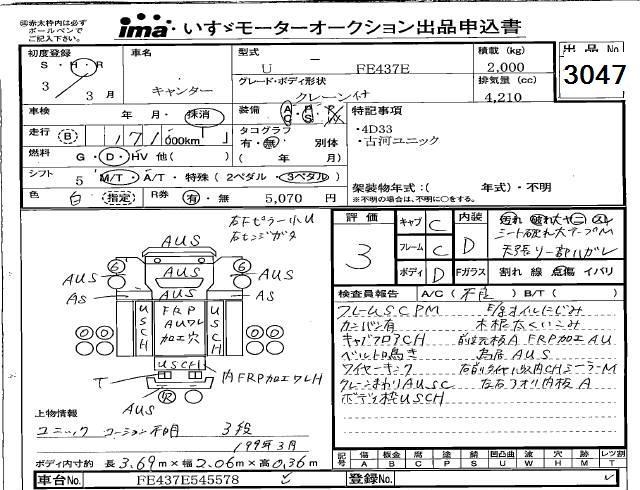 ㊟赤太枠内は必ず
ボールペンで
ご記入下さい。
ima いすゞモーターオークション出品申込書
初度登録
S・H・R
3年 3月
車名
キャンター
型式
U - FE437E
グレード・ボディ形状
クレーン付
積載(kg)
2,000
排気量(cc)
4,210
出品No
3047
車検 年 月・抹消
走行 B 171,000km
燃料 G・D・HV 他( )
シフト 5 M/T・A/T・特殊(2ペダル・3ペダル)
色 白 指定 R券 有・無 5,070円
装備
タコグラフ
有・無 別体
( 年 月)
特記事項
・4D33
・古河ユニック
架装物年式:( 年式)・不明
※不明の場合は、不明に○をする。
右Fピラー小U
AUS
AUS
AUS
AUS
AS
AS
USCH
FRP
AUワレ
加エ穴
USCH
USCH
T
内FRP加エワレH
AUS
上物情報
ユニック 3段
199年3月
ボディ内寸約 長3.69m×幅2.06m×高0.36m
車台No. FE437E545578
登録No.
評価
3
キャブ C
フレーム C
ボディ D
内装 D
Fガラス 割れ 線 点傷 イバリ
シート破れ大テープM
天張リ一部ハガレ
検査員報告 A/C(不良) B/T( )
フレームUSCPM
カンバン有
キャバフロアCH
ベルト鳴き
ワイヤーキング
クレーンまわりAUSC
ボディ枠USCH
E/gオイルにじみ
FRP加エAU
鳥居AUS
左右アオリ内板A
記号
傷 A
板金 B
腐 C
塗 P
錆 S
凹凸曲 U
波 W
穴 H
無 M
レツ割 T